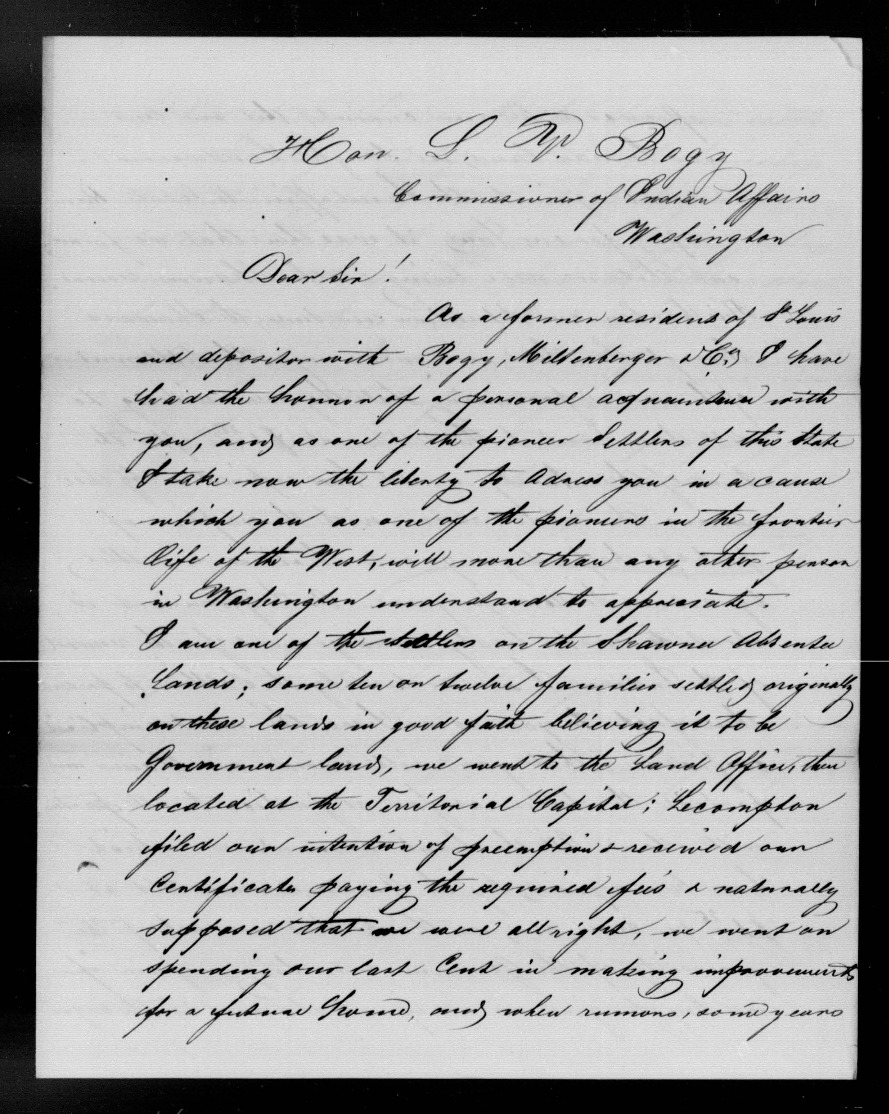 Hon. L. V. Bogy
Commissioner of Indian Affairs
Washington
Dear Sir!
As a former resident of St Louis
and depositor with Bogy, Miltenberger & Co, I have
had the honnor of a personal acquaintance with
you, and as one of the pioneer Settlers of this State
I take now the liberty to adress you in a cause
which you as one of the pioneers in the frontier
life of the West, will more than any other person
in Washington understand to appreciate.
I am one of the settlers on the Shawnee Absentee
Lands; some ten or twelve families settled originally
on these lands in good faith believing it to be
Government land, we went to the Land Office, then
located at the Territorial Capital; Lecompton
filed our intention of preemption & received our
Certificates paying the required fees & naturally
supposed that we were all right, we went on
spending our last Cent in making improovements
for a future home, and when rumors, some years